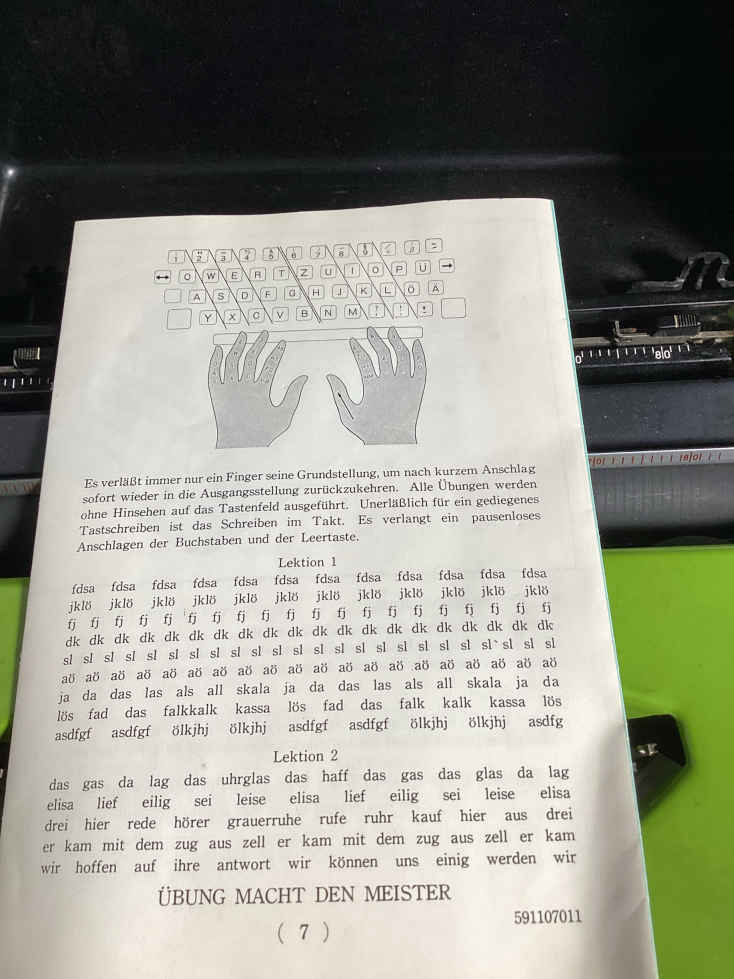 1 2 3 4 5 6 7 8 9
Q W E R T Z U I O P Ü
A S D F G H J K L Ö Ä
Y X C V B N M
Es verläßt immer nur ein Finger seine Grundstellung, um nach kurzem Anschlag
sofort wieder in die Ausgangsstellung zurückzukehren. Alle Übungen werden
ohne Hinsehen auf das Tastenfeld ausgeführt. Unerläßlich für ein gediegenes
Tastschreiben ist das Schreiben im Takt. Es verlangt ein pausenloses
Anschlagen der Buchstaben und der Leertaste.
Lektion 1
fdsa fdsa fdsa fdsa fdsa fdsa fdsa fdsa fdsa fdsa fdsa fdsa
jklö jklö jklö jklö jklö jklö jklö jklö jklö jklö jklö jklö
fj fj fj fj fj fj fj fj fj fj fj fj fj fj fj fj fj fj fj fj
dk dk dk dk dk dk dk dk dk dk dk dk dk dk dk dk dk dk dk dk
sl sl sl sl sl sl sl sl sl sl sl sl sl sl sl sl sl sl sl sl sl sl sl sl
aö aö aö aö aö aö aö aö aö aö aö aö aö aö aö aö aö aö aö aö
ja da das las als all skala ja da das las als all skala ja da
lös fad das falkkalk kassa lös fad das falk kalk kassa lös
asdfgf asdfgf ölkjhj ölkjhj asdfgf asdfgf ölkjhj ölkjhj asdfg
Lektion 2
das gas da lag das uhrglas das haff das gas das glas da lag
elisa lief eilig sei leise elisa lief eilig sei leise elisa
drei hier rede hörer grauerruhe rufe ruhr kauf hier aus drei
er kam mit dem zug aus zell er kam mit dem zug aus zell er kam
wir hoffen auf ihre antwort wir können uns einig werden wir
ÜBUNG MACHT DEN MEISTER
( 7 )
591107011
80